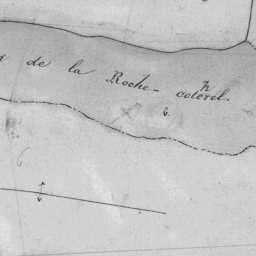 de la Roche-coterel.
6.